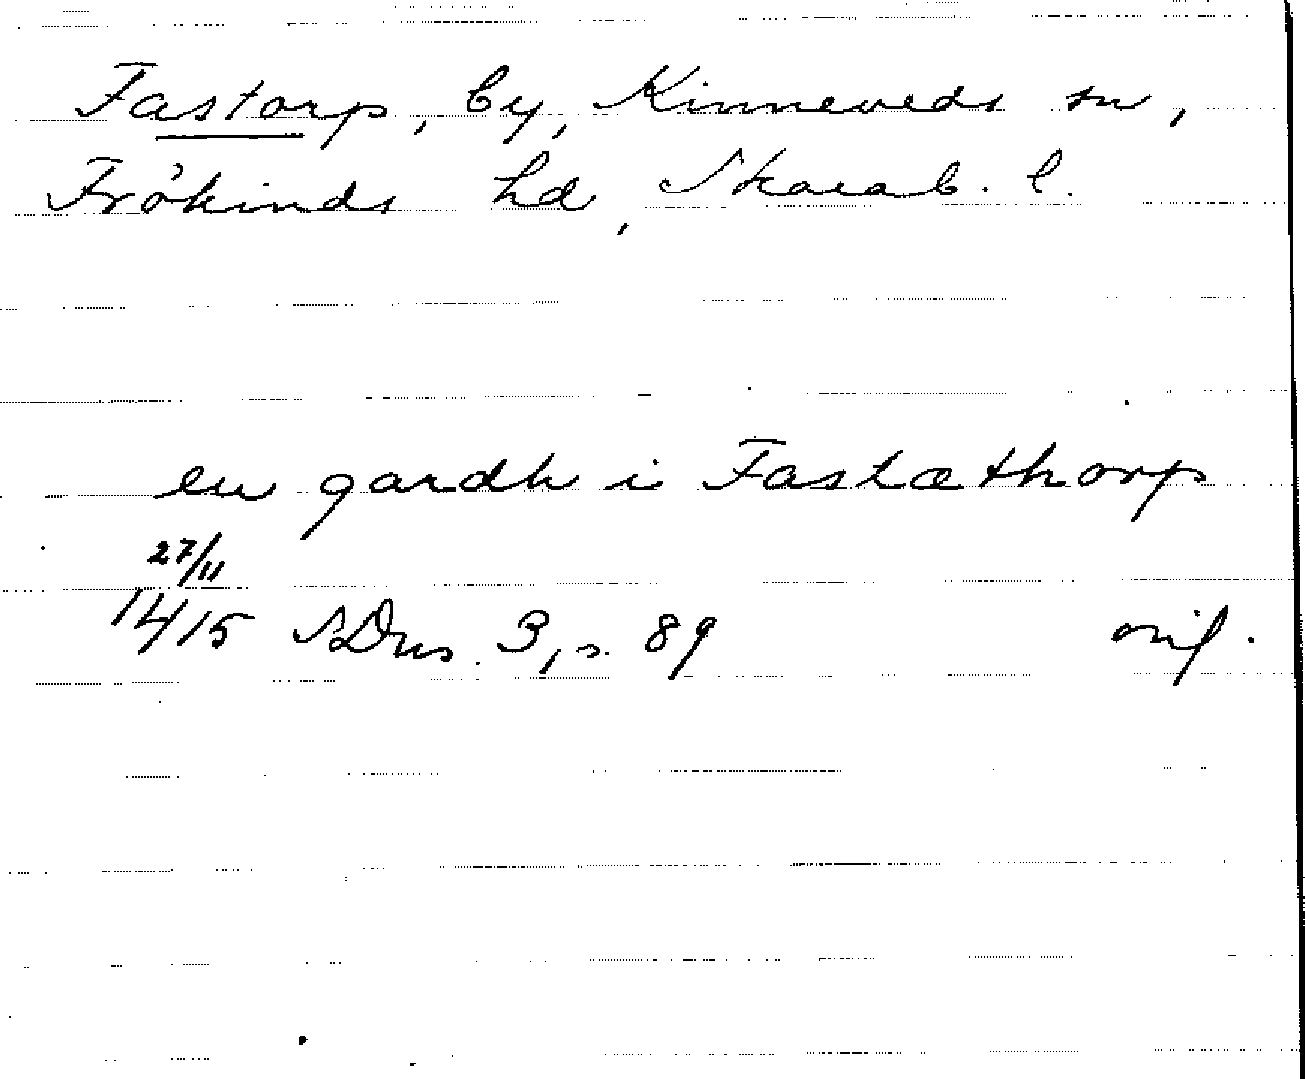 Fastorp, by, Kinneveds sn,
Frökinds hd, Skarab. l.
en gardh i Fastæthorp
27/11
1415 SDns. 3, s. 89 orig.